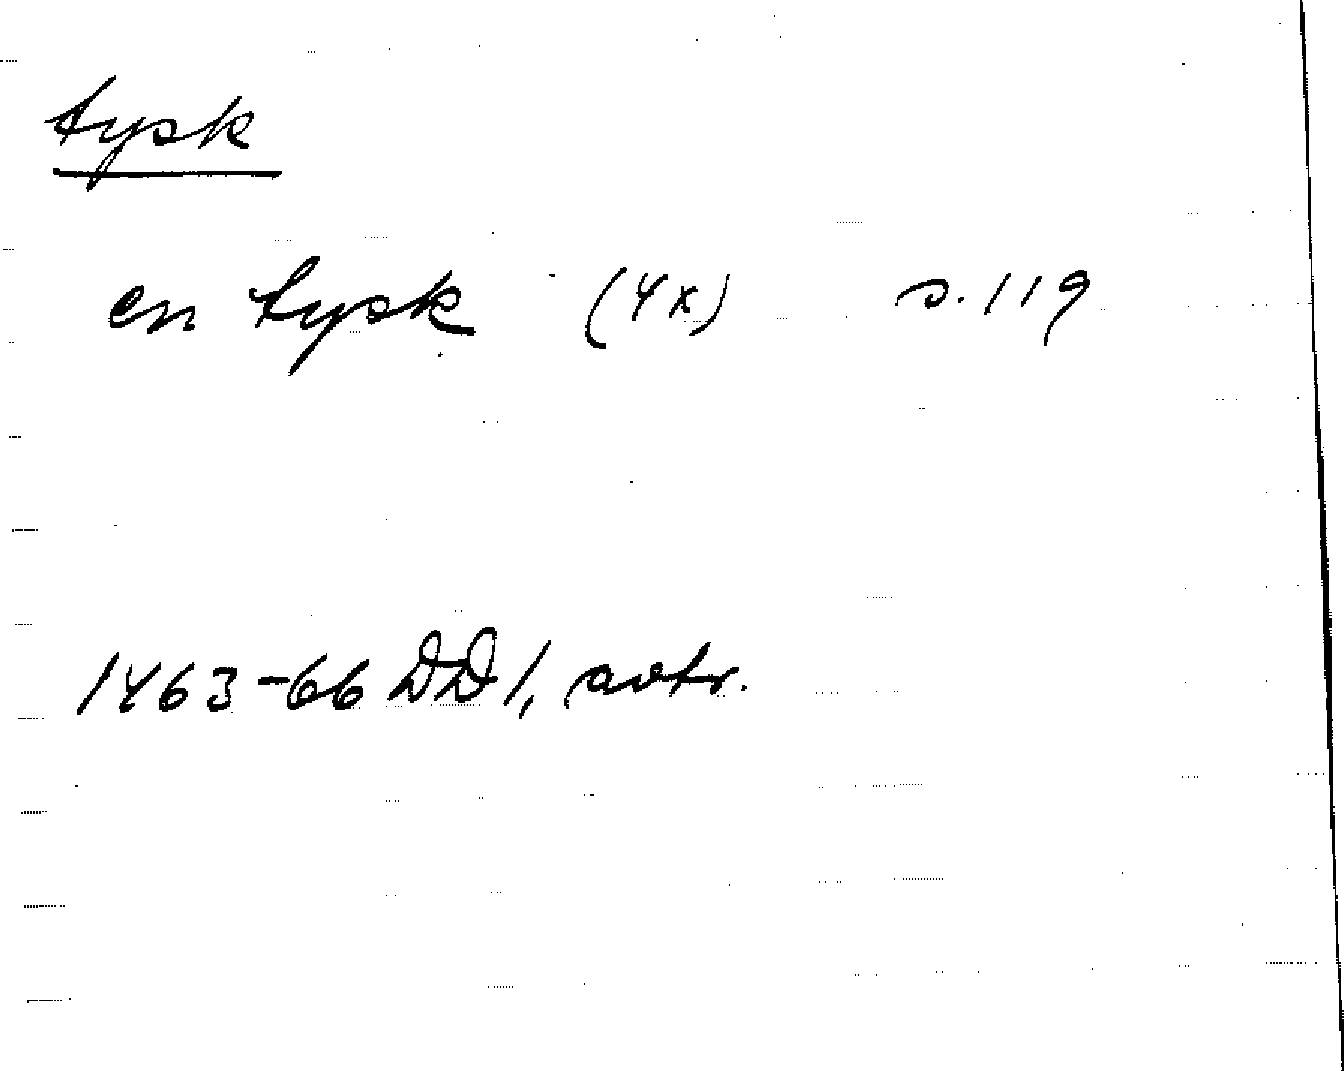 tysk
en tysk (4x) s. 119
1463-66 DD1, avtr.